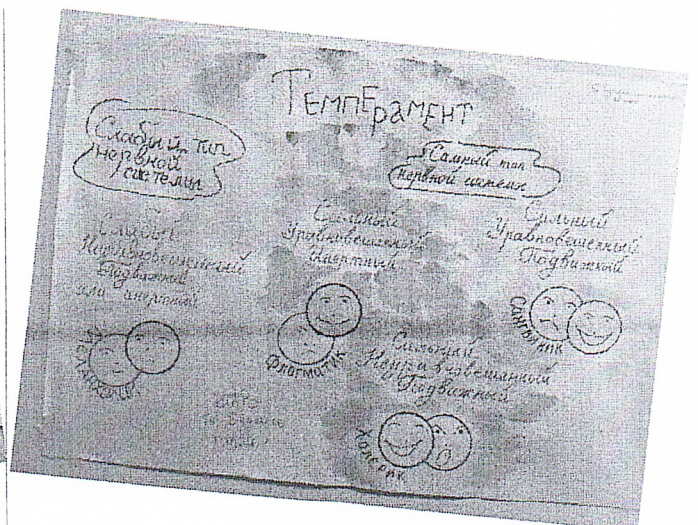 Темперамент
Слабый тип
нервной
системы
Сильный тип
нервной системы
Слабый
Неуравновешенный
Подвижный
или инертный
Меланхолик
Сильный
Уравновешенный
Инертный
Флагматик
Сильный
Уравновешенный
Подвижный
Сангвиник
Сильный
Неуравновешанный
Подвижный
Холерик